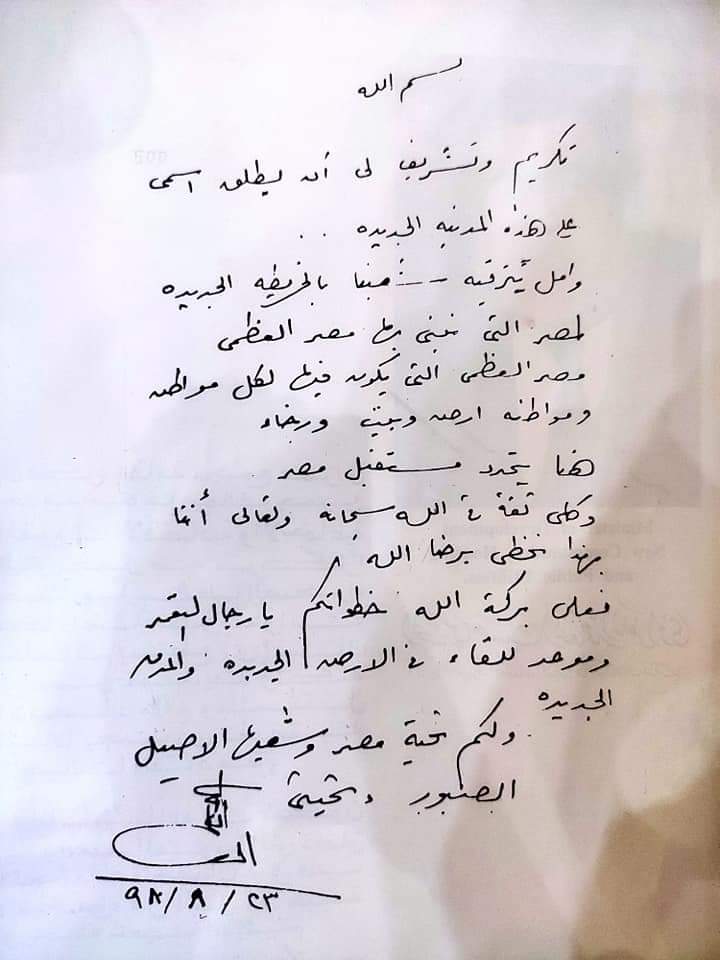 بسم الله
تكريم وتشريف لى أن يطلق اسمى
على هذه المدينه الجديده . .
وامل يتزقيه شعبنا بالخريطه الجديده
لمصر التى نبنى بها مصر العظمى
مصر العظمى التى يكون فيها لكل مواطن
ومواطنه ارض وبيت ورخاء
هنا يتحدد مستقبل مصر
وكلى ثقة فى الله سبحانه وتعالى أننا
بهذا نحظى برضا الله
فعلى بركة الله خطواتكم يا رجال
وموعد للقاء فى الارض الجديده والمدن
الجديده
ولكم تحية مصر وشعبها الاصيل
الصبور وتحيتى
٢٣ / ٨ / ٩٨